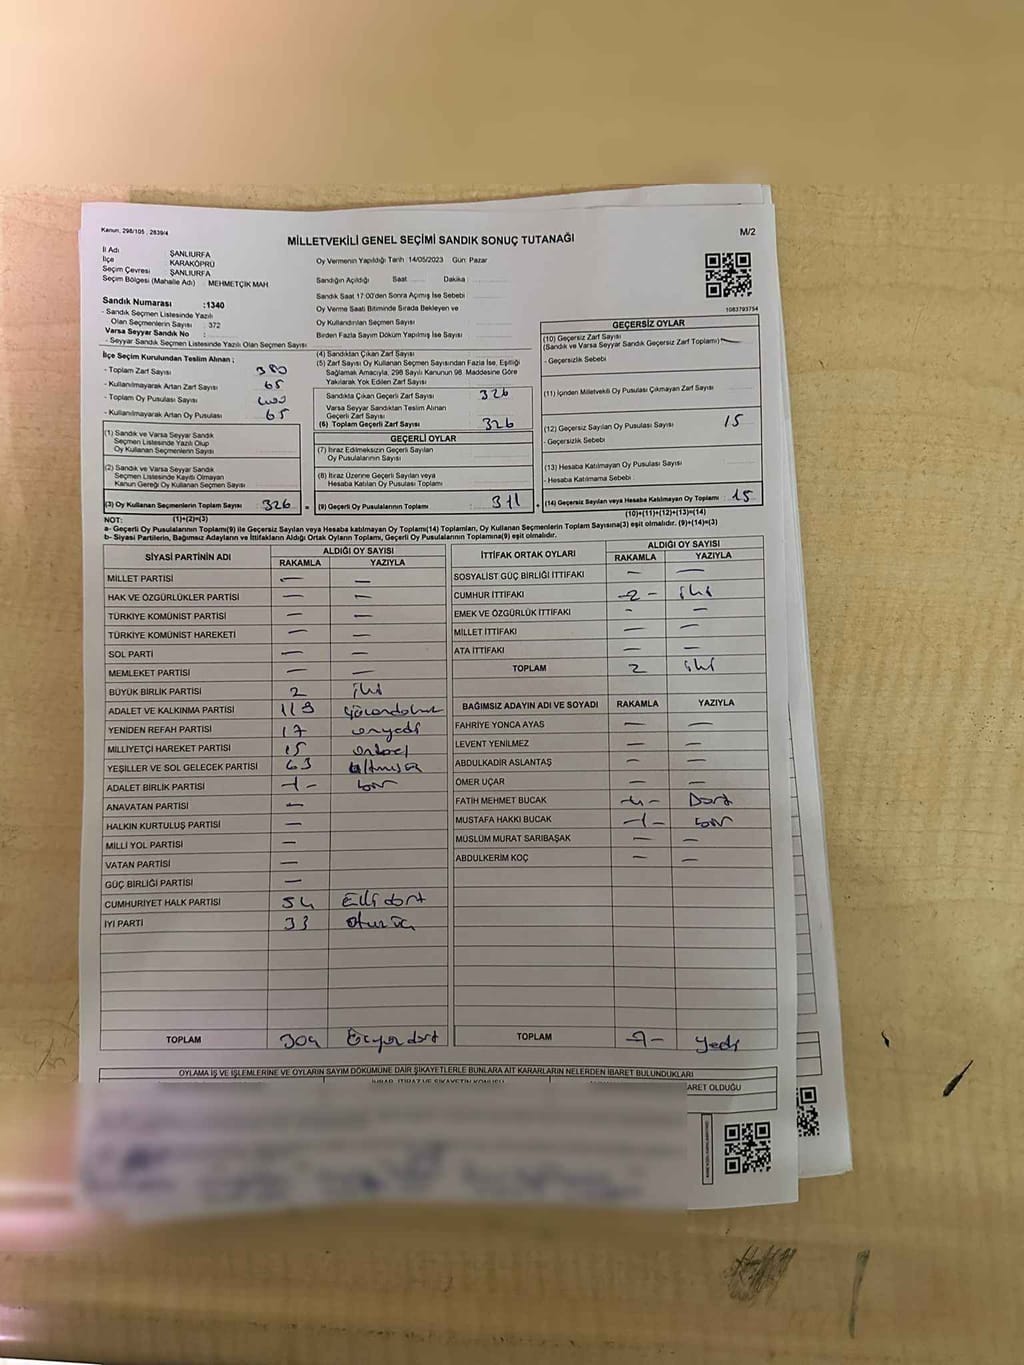 Kanun, 298/105 , 2839/4
MİLLETVEKİLİ GENEL SEÇİMİ SANDIK SONUÇ TUTANAĞI
M/2
İl Adı ŞANLIURFA
İlçe KARAKÖPRÜ
Seçim Çevresi ŞANLIURFA
Seçim Bölgesi (Mahalle Adı) : MEHMETÇİK MAH
Sandık Numarası :1340
- Sandık Seçmen Listesinde Yazılı
Olan Seçmenlerin Sayısı : 372
Varsa Seyyar Sandık No :
- Seyyar Sandık Seçmen Listesinde Yazılı Olan Seçmen Sayısı
Oy Vermenin Yapıldığı Tarih 14/05/2023 Gün: Pazar
Sandığın Açıldığı Saat Dakika
Sandık Saat 17:00'den Sonra Açımış İse Sebebi
Oy Verme Saati Bitiminde Sırada Bekleyen ve
Oy Kullandırılan Seçmen Sayısı
Birden Fazla Sayım Döküm Yapılmış İse Sayısı
1083793754
İlçe Seçim Kurulundan Teslim Alınan ;
- Toplam Zarf Sayısı 380
- Kullanılmayarak Artan Zarf Sayısı 65
- Toplam Oy Pusulası Sayısı
- Kullanılmayarak Artan Oy Pusulası 65
(1) Sandık ve Varsa Seyyar Sandık
Seçmen Listesinde Yazılı Olup
Oy Kullanan Seçmenlerin Sayısı
(2) Sandık ve Varsa Seyyar Sandık
Seçmen Listesinde Kayıtlı Olmayan
Kanun Gereği Oy Kullanan Seçmen Sayısı
(3) Oy Kullanan Seçmenlerin Toplam Sayısı 326
(1)+(2)=(3)
(4) Sandıktan Çıkan Zarf Sayısı
(5) Zarf Sayısı Oy Kullanan Seçmen Sayısından Fazla İse, Eşitliği
Sağlamak Amacıyla, 298 Sayılı Kanunun 98. Maddesine Göre
Yakılarak Yok Edilen Zarf Sayısı
Sandıkta Çıkan Geçerli Zarf Sayısı 326
Varsa Seyyar Sandıktan Teslim Alınan
Geçerli Zarf Sayısı
(6) Toplam Geçerli Zarf Sayısı 326
GEÇERLİ OYLAR
(7) İtiraz Edilmeksizin Geçerli Sayılan
Oy Pusulalarının Sayısı
(8) İtiraz Üzerine Geçerli Sayılan veya
Hesaba Katılan Oy Pusulası Toplamı
= (9) Geçerli Oy Pusulalarının Toplamı 311
GEÇERSİZ OYLAR
(10) Geçersiz Zarf Sayısı
(Sandık ve Varsa Seyyar Sandık Geçersiz Zarf Toplamı) —
- Geçersizlik Sebebi
(11) İçinden Milletvekili Oy Pusulası Çıkmayan Zarf Sayısı
(12) Geçersiz Sayılan Oy Pusulası Sayısı 15
- Geçersizlik Sebebi
(13) Hesaba Katılmayan Oy Pusulası Sayısı
- Hesaba Katılmama Sebebi
+ (14) Geçersiz Sayılan veya Hesaba Katılmayan Oy Toplamı : 15
(10)+(11)+(12)+(13)=(14)
NOT:
a- Geçerli Oy Pusulalarının Toplamı(9) ile Geçersiz Sayılan veya Hesaba katılmayan Oy Toplamı(14) Toplamları, Oy Kullanan Seçmenlerin Toplam Sayısına(3) eşit olmalıdır. (9)+(14)=(3)
b- Siyasi Partilerin, Bağımsız Adayların ve İttifakların Aldığı Ortak Oyların Toplamı, Geçerli Oy Pusulalarının Toplamına(9) eşit olmalıdır.
SİYASİ PARTİNİN ADI ALDIĞI OY SAYISI
RAKAMLA YAZIYLA
MİLLET PARTİSİ — —
HAK VE ÖZGÜRLÜKLER PARTİSİ — —
TÜRKİYE KOMÜNİST PARTİSİ — —
TÜRKİYE KOMÜNİST HAREKETİ — —
SOL PARTİ — —
MEMLEKET PARTİSİ — —
BÜYÜK BİRLİK PARTİSİ 2 iki
ADALET VE KALKINMA PARTİSİ
YENİDEN REFAH PARTİSİ 17 onyedi
MİLLİYETÇİ HAREKET PARTİSİ 15 onbeş
YEŞİLLER VE SOL GELECEK PARTİSİ 63 altmışüç
ADALET BİRLİK PARTİSİ -1- bir
ANAVATAN PARTİSİ —
HALKIN KURTULUŞ PARTİSİ —
MİLLİ YOL PARTİSİ —
VATAN PARTİSİ —
GÜÇ BİRLİĞİ PARTİSİ —
CUMHURİYET HALK PARTİSİ 54 Elli dört
İYİ PARTİ 33 otuz üç
TOPLAM 304 Üçyüz dört
İTTİFAK ORTAK OYLARI ALDIĞI OY SAYISI
RAKAMLA YAZIYLA
SOSYALİST GÜÇ BİRLİĞİ İTTİFAKI — —
CUMHUR İTTİFAKI -2- iki
EMEK VE ÖZGÜRLÜK İTTİFAKI - —
MİLLET İTTİFAKI — —
ATA İTTİFAKI — —
TOPLAM 2 iki
BAĞIMSIZ ADAYIN ADI VE SOYADI RAKAMLA YAZIYLA
FAHRİYE YONCA AYAS — —
LEVENT YENİLMEZ — —
ABDULKADİR ASLANTAŞ — —
ÖMER UÇAR — —
FATİH MEHMET BUCAK -4- Dört
MUSTAFA HAKKI BUCAK -1- bir
MÜSLÜM MURAT SARIBAŞAK — —
ABDULKERİM KOÇ — —
TOPLAM yedi
OYLAMA İŞ VE İŞLEMLERİNE VE OYLARIN SAYIM DÖKÜMÜNE DAİR ŞİKAYETLERLE BUNLARA AİT KARARLARIN NELERDEN İBARET BULUNDUKLARI
İHBAR, İTİRAZ VE ŞİKAYETİN KONUSU
BARET OLDUĞU